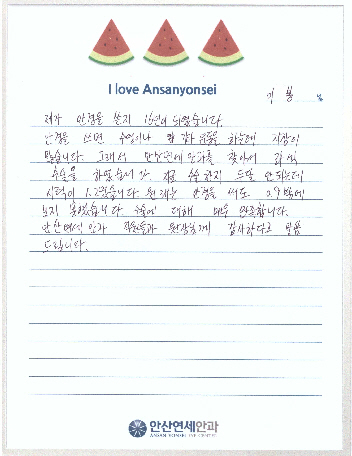 I love Ansanyonsei
제가 안경을 쓴지 15년이 되었습니다.
안경을 쓰면 수영이나 운동을 하는데 지장이
많습니다. 그래서 안산연세안과를 찾아서 라식
수술을 하였습니다. 지금 수술한지 도 안되는데
시력이 1.2였습니다. 원래는 안경을 써도 0.9밖에
보지 못했습니다. 수술에 대해 매우 만족합니다.
안산연세안과 직원들과 원장님께 감사하다고 말씀
드립니다.
안산연세안과
ANSAN YONSEI EYE CENTER